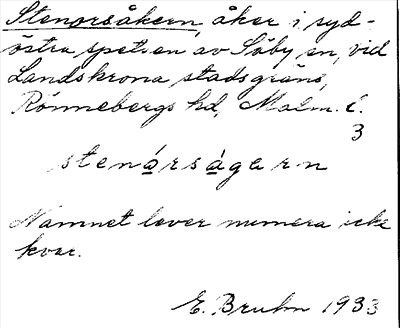 Stenorsåkern, åker i syd-
östra spetsen av Säby sn, vid
Landskrona stadsgräns,
Rönnebergs hd, Malm. l.
3
stenårsågarn
Namnet lever numera icke
kvar.
E. Bruhn 1933